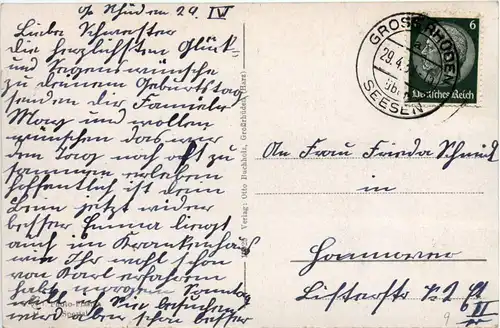 Gr Rhüden 29. IV
Liebe Schwester
die herzlichsten Glück-
und Segenswünsche
zu deinem Geburtstag
senden dir Familie
May und wollen
wünschen das wir
den Tag noch oft zu
sammen erleben
hoffentlich ist dein
Bein jetzt wider
besser Emma liegt
auch im Krankenhaus
wie Ihr wohl schon
von Karl erfahren
habt morgen Sonntag
besuchen
wird aber schon besser
Verlag: Otto Buchholz, Großrhüden (Harz)
GROSSRHÜDEN
29.4.
über
SEESEN
6
Deutsches Reich
An Frau Frieda Schmid
in
Hannover
Listerstr 12
II